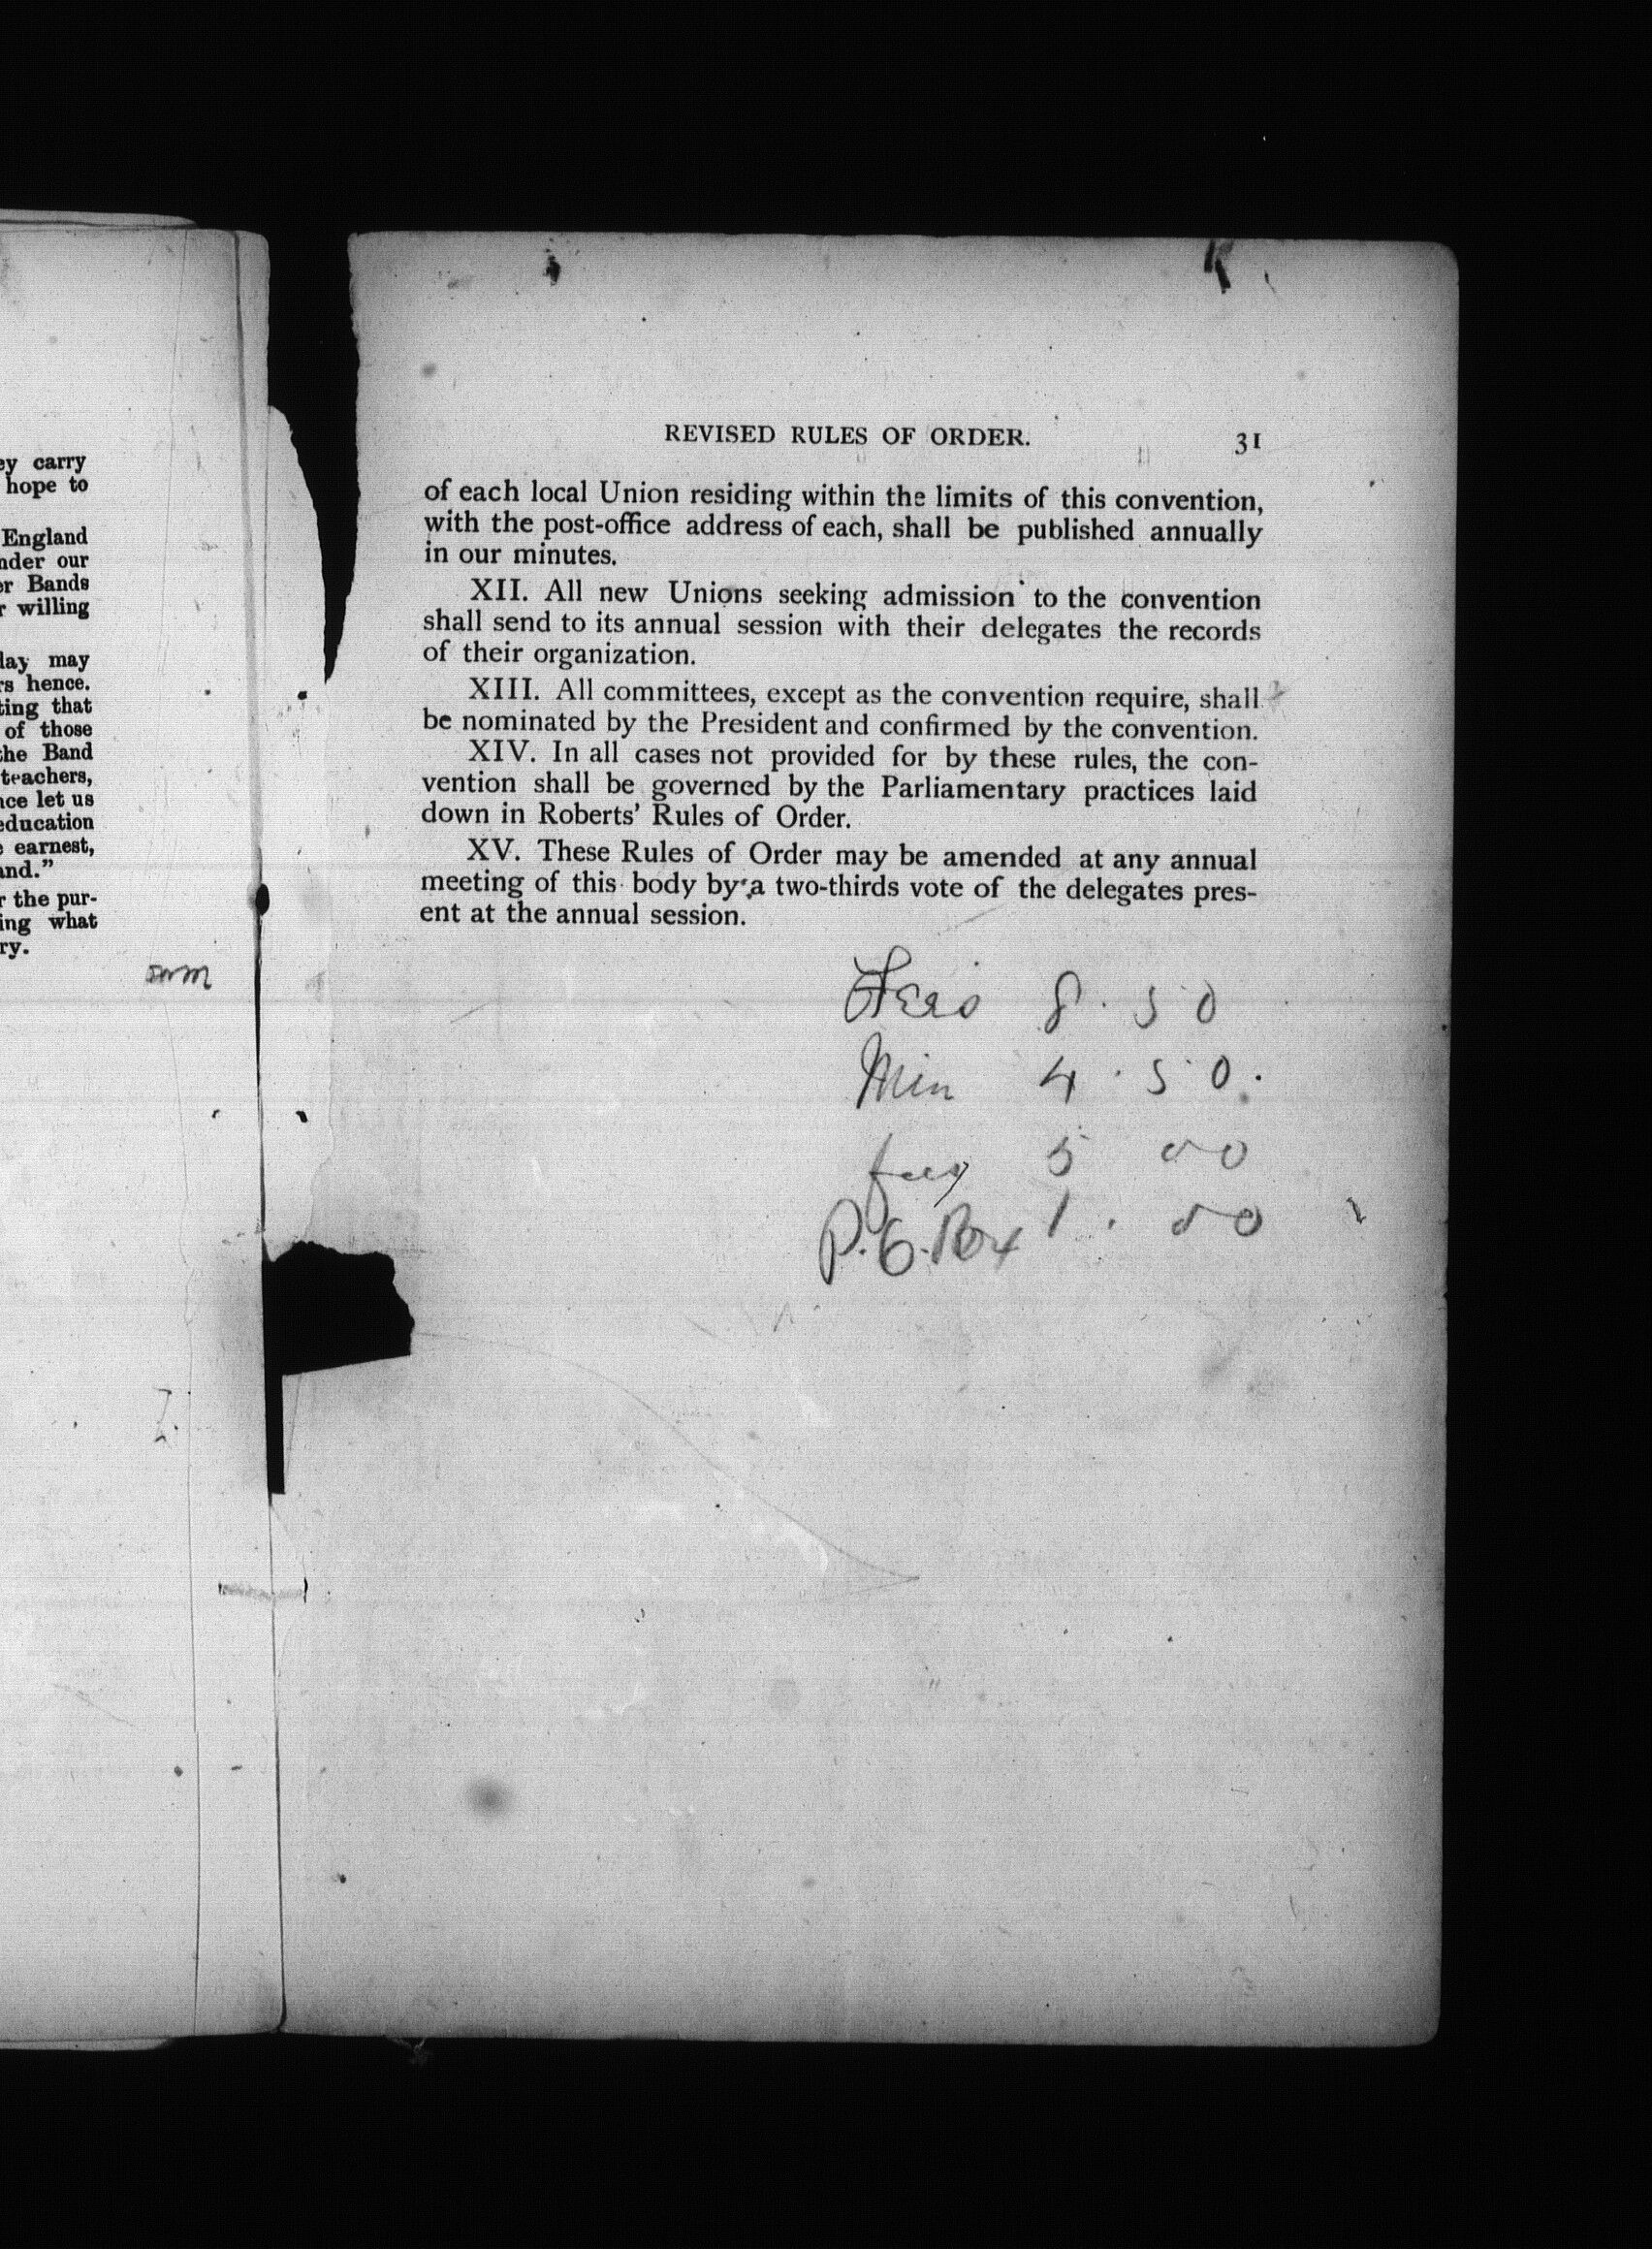 ey carry
hope to
England
nder our
er Bands
r willing
lay may
rs hence.
ting that
of those
the Band
teachers,
nce let us
education
e earnest,
and."
r the pur-
ing what
ry.
REVISED RULES OF ORDER. 31
of each local Union residing within the limits of this convention,
with the post-office address of each, shall be published annually
in our minutes.
XII. All new Unions seeking admission to the convention
shall send to its annual session with their delegates the records
of their organization.
XIII. All committees, except as the convention require, shall
be nominated by the President and confirmed by the convention.
XIV. In all cases not provided for by these rules, the con-
vention shall be governed by the Parliamentary practices laid
down in Roberts' Rules of Order.
XV. These Rules of Order may be amended at any annual
meeting of this body by a two-thirds vote of the delegates pres-
ent at the annual session.
8.50
Min 4.50.
5 00
P.O. Box 1.00